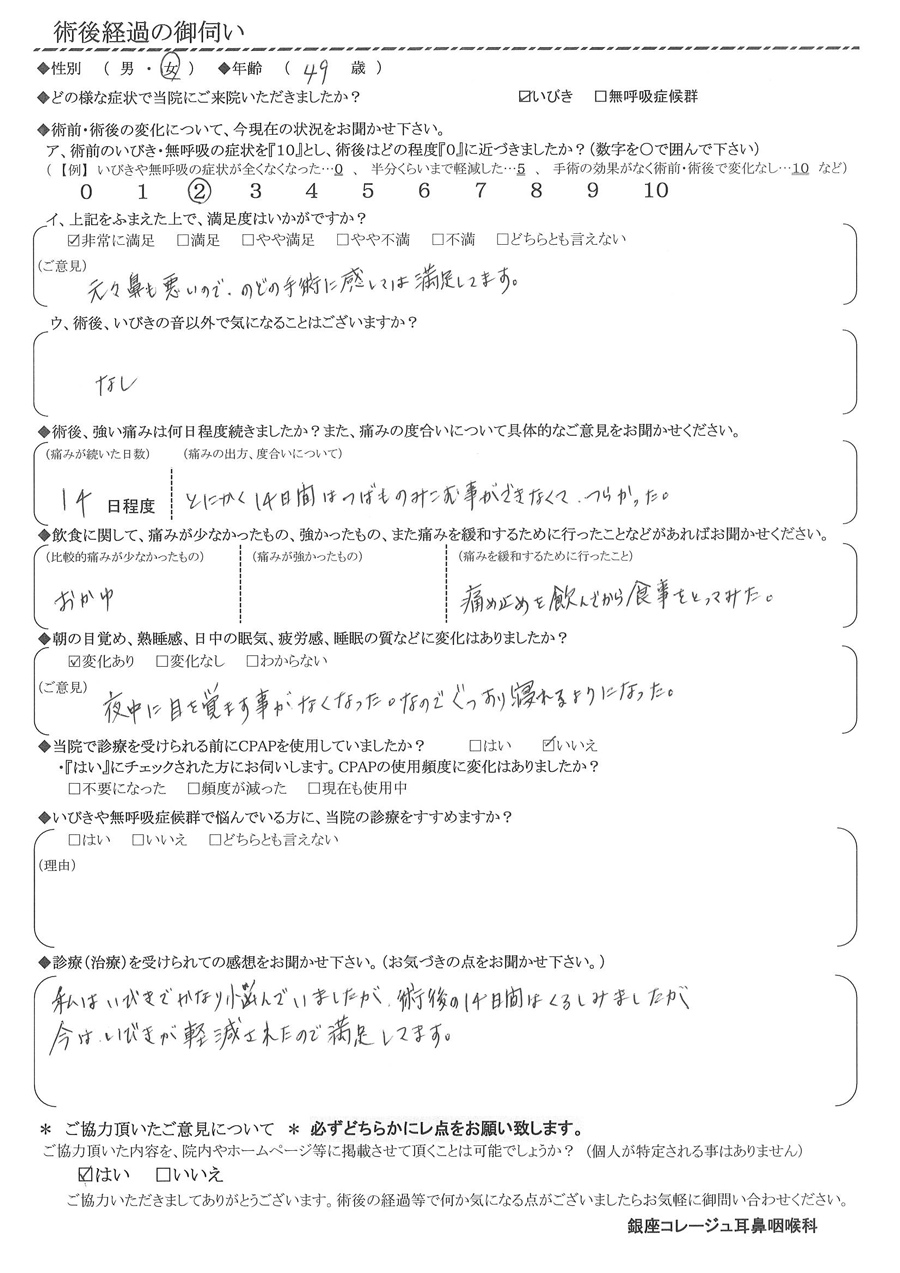 術後経過の御伺い
◆性別 （ 男 ・ 女 ） ◆年齢 （ 49 歳 ）
◆どの様な症状で当院にご来院いただきましたか？ ☑いびき □無呼吸症候群
◆術前・術後の変化について、今現在の状況をお聞かせ下さい。
ア、術前のいびき・無呼吸の症状を『10』とし、術後はどの程度『0』に近づきましたか？（数字を〇で囲んで下さい）
（ 【例】 いびきや無呼吸の症状が全くなくなった…0 、 半分くらいまで軽減した…5 、 手術の効果がなく術前・術後で変化なし…10 など）
0 1 2 3 4 5 6 7 8 9 10
イ、上記をふまえた上で、満足度はいかがですか？
☑非常に満足 □満足 □やや満足 □やや不満 □不満 □どちらとも言えない
（ご意見）
元々鼻も悪いので、のどの手術に感しては満足してます。
ウ、術後、いびきの音以外で気になることはございますか？
なし
◆術後、強い痛みは何日程度続きましたか？また、痛みの度合いについて具体的なご意見をお聞かせください。
（痛みが続いた日数） （痛みの出方、度合いについて）
14 日程度 とにかく14日間はつばものみこむ事ができなくて、つらかった。
◆飲食に関して、痛みが少なかったもの、強かったもの、また痛みを緩和するために行ったことなどがあればお聞かせください。
（比較的痛みが少なかったもの） （痛みが強かったもの） （痛みを緩和するために行ったこと）
おかゆ 痛め止めを飲んでから食事をとってみた。
◆朝の目覚め、熟睡感、日中の眠気、疲労感、睡眠の質などに変化はありましたか？
☑変化あり □変化なし □わからない
（ご意見）
夜中に目を覚ます事がなくなった。なのでぐっすり寝れるようになった。
◆当院で診療を受けられる前にCPAPを使用していましたか？ □はい ☑いいえ
・『はい』にチェックされた方にお伺いします。CPAPの使用頻度に変化はありましたか？
□不要になった □頻度が減った □現在も使用中
◆いびきや無呼吸症候群で悩んでいる方に、当院の診療をすすめますか？
□はい □いいえ □どちらとも言えない
（理由）
◆診療（治療）を受けられての感想をお聞かせ下さい。（お気づきの点をお聞かせ下さい。）
私はいびきでかなり悩んでいましたが、術後の14日間はくるしみましたが
今は、いびきが軽減されたので満足してます。
＊ ご協力頂いたご意見について ＊ 必ずどちらかにレ点をお願い致します。
ご協力頂いた内容を、院内やホームページ等に掲載させて頂くことは可能でしょうか？ （個人が特定される事はありません）
☑はい □いいえ
ご協力いただきましてありがとうございます。術後の経過等で何か気になる点がございましたらお気軽に御問い合わせください。
銀座コレージュ耳鼻咽喉科